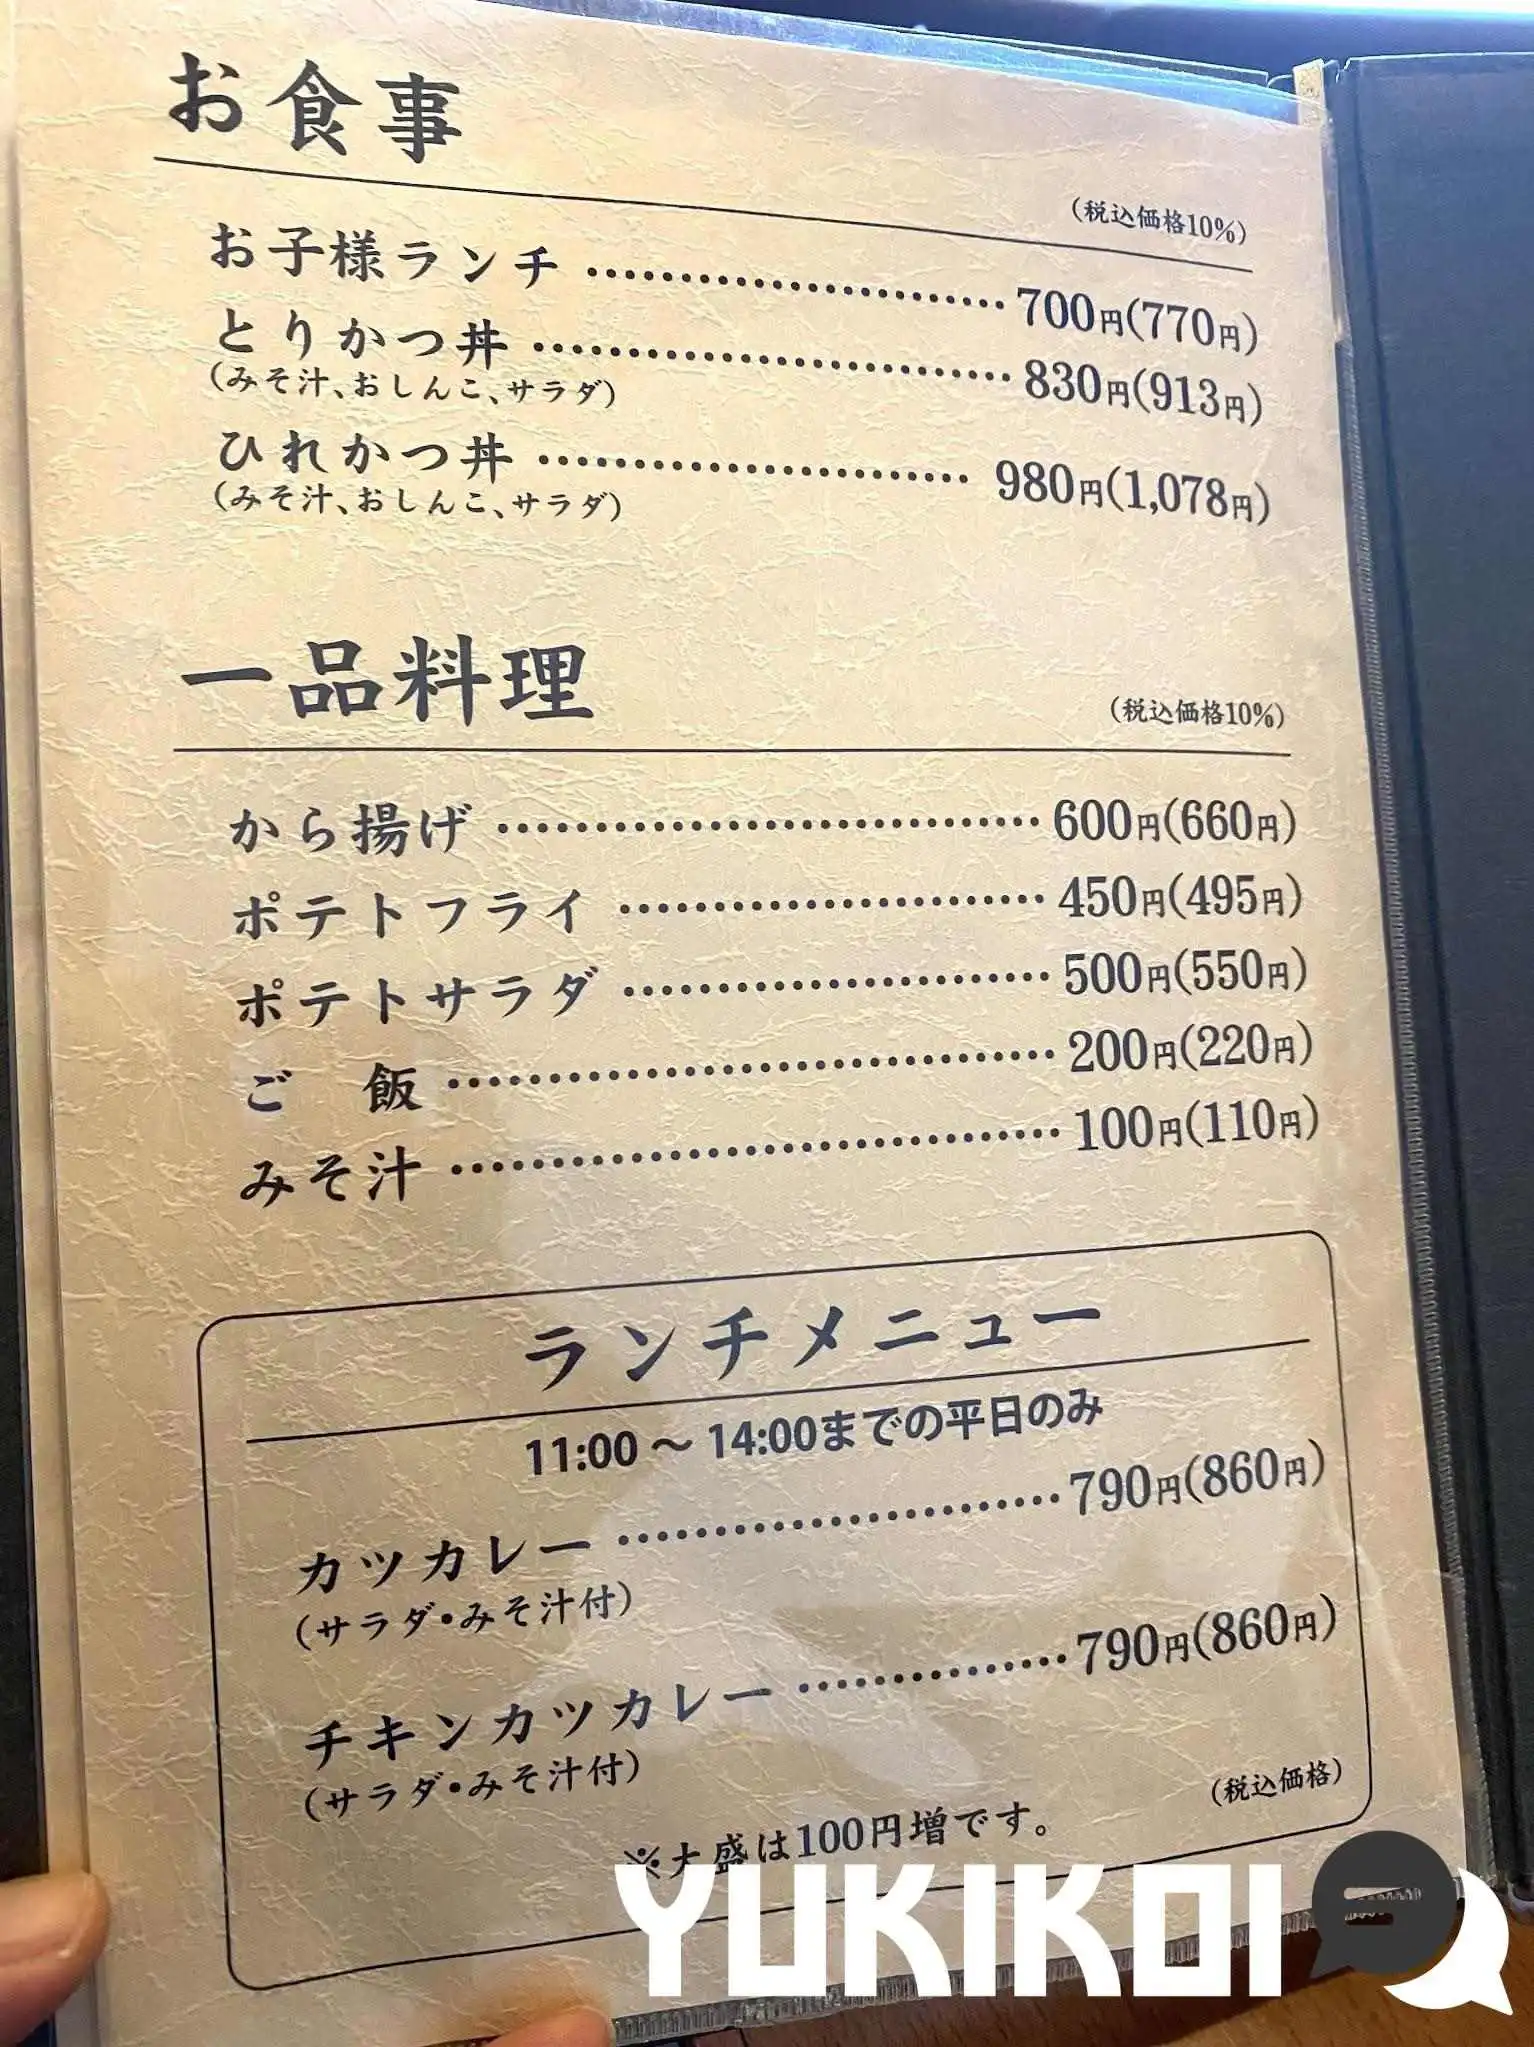 お食事
(税込価格10%)
お子様ランチ ………………… 700円(770円)
とりかつ丼 ………………… 830円(913円)
(みそ汁、おしんこ、サラダ)
ひれかつ丼 ………………… 980円(1,078円)
(みそ汁、おしんこ、サラダ)
一品料理
(税込価格10%)
から揚げ ………………… 600円(660円)
ポテトフライ ………………… 450円(495円)
ポテトサラダ ………………… 500円(550円)
ご 飯 ………………… 200円(220円)
みそ汁 ………………… 100円(110円)
ランチメニュー
11:00 〜 14:00までの平日のみ
カツカレー ………………… 790円(860円)
(サラダ・みそ汁付)
チキンカツカレー ………… 790円(860円)
(サラダ・みそ汁付)
(税込価格)
※大盛は100円増です。
YUKIKOI